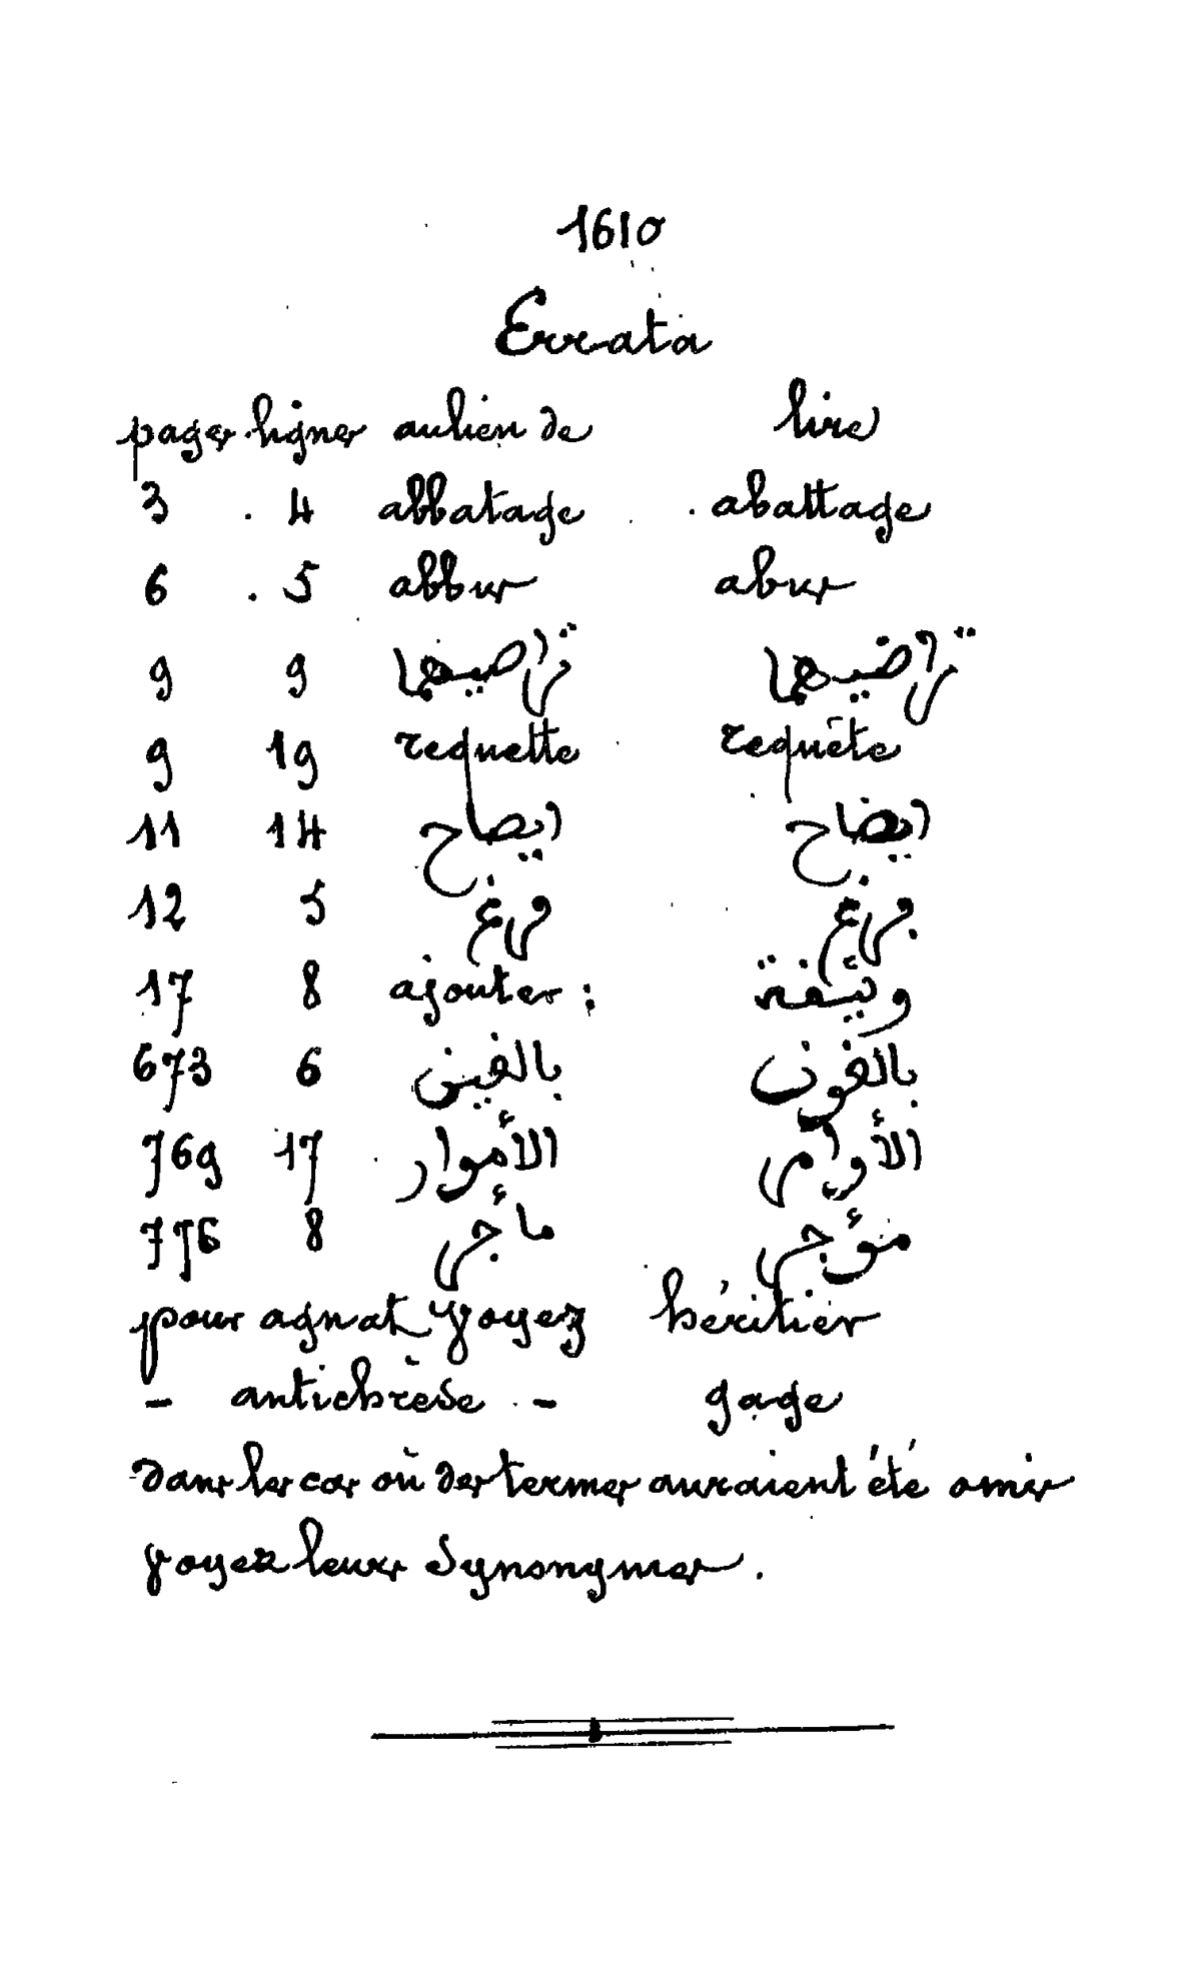 1610
Errata
pages lignes au lieu de lire
3 . 4 abbatage . abattage
6 . 5 abbus abus
9 9 تراصيهما تراضيهما
9 19 requette requête
11 14 ايصاح ايضاح
12 5
17 8 ajouter : وثيقة
673 6
769 17 الأموار
776 8
pour agnat voyez héritier
– antichrèse – gage
dans les cas où des termes auraient été omis
voyez leurs synonymes.